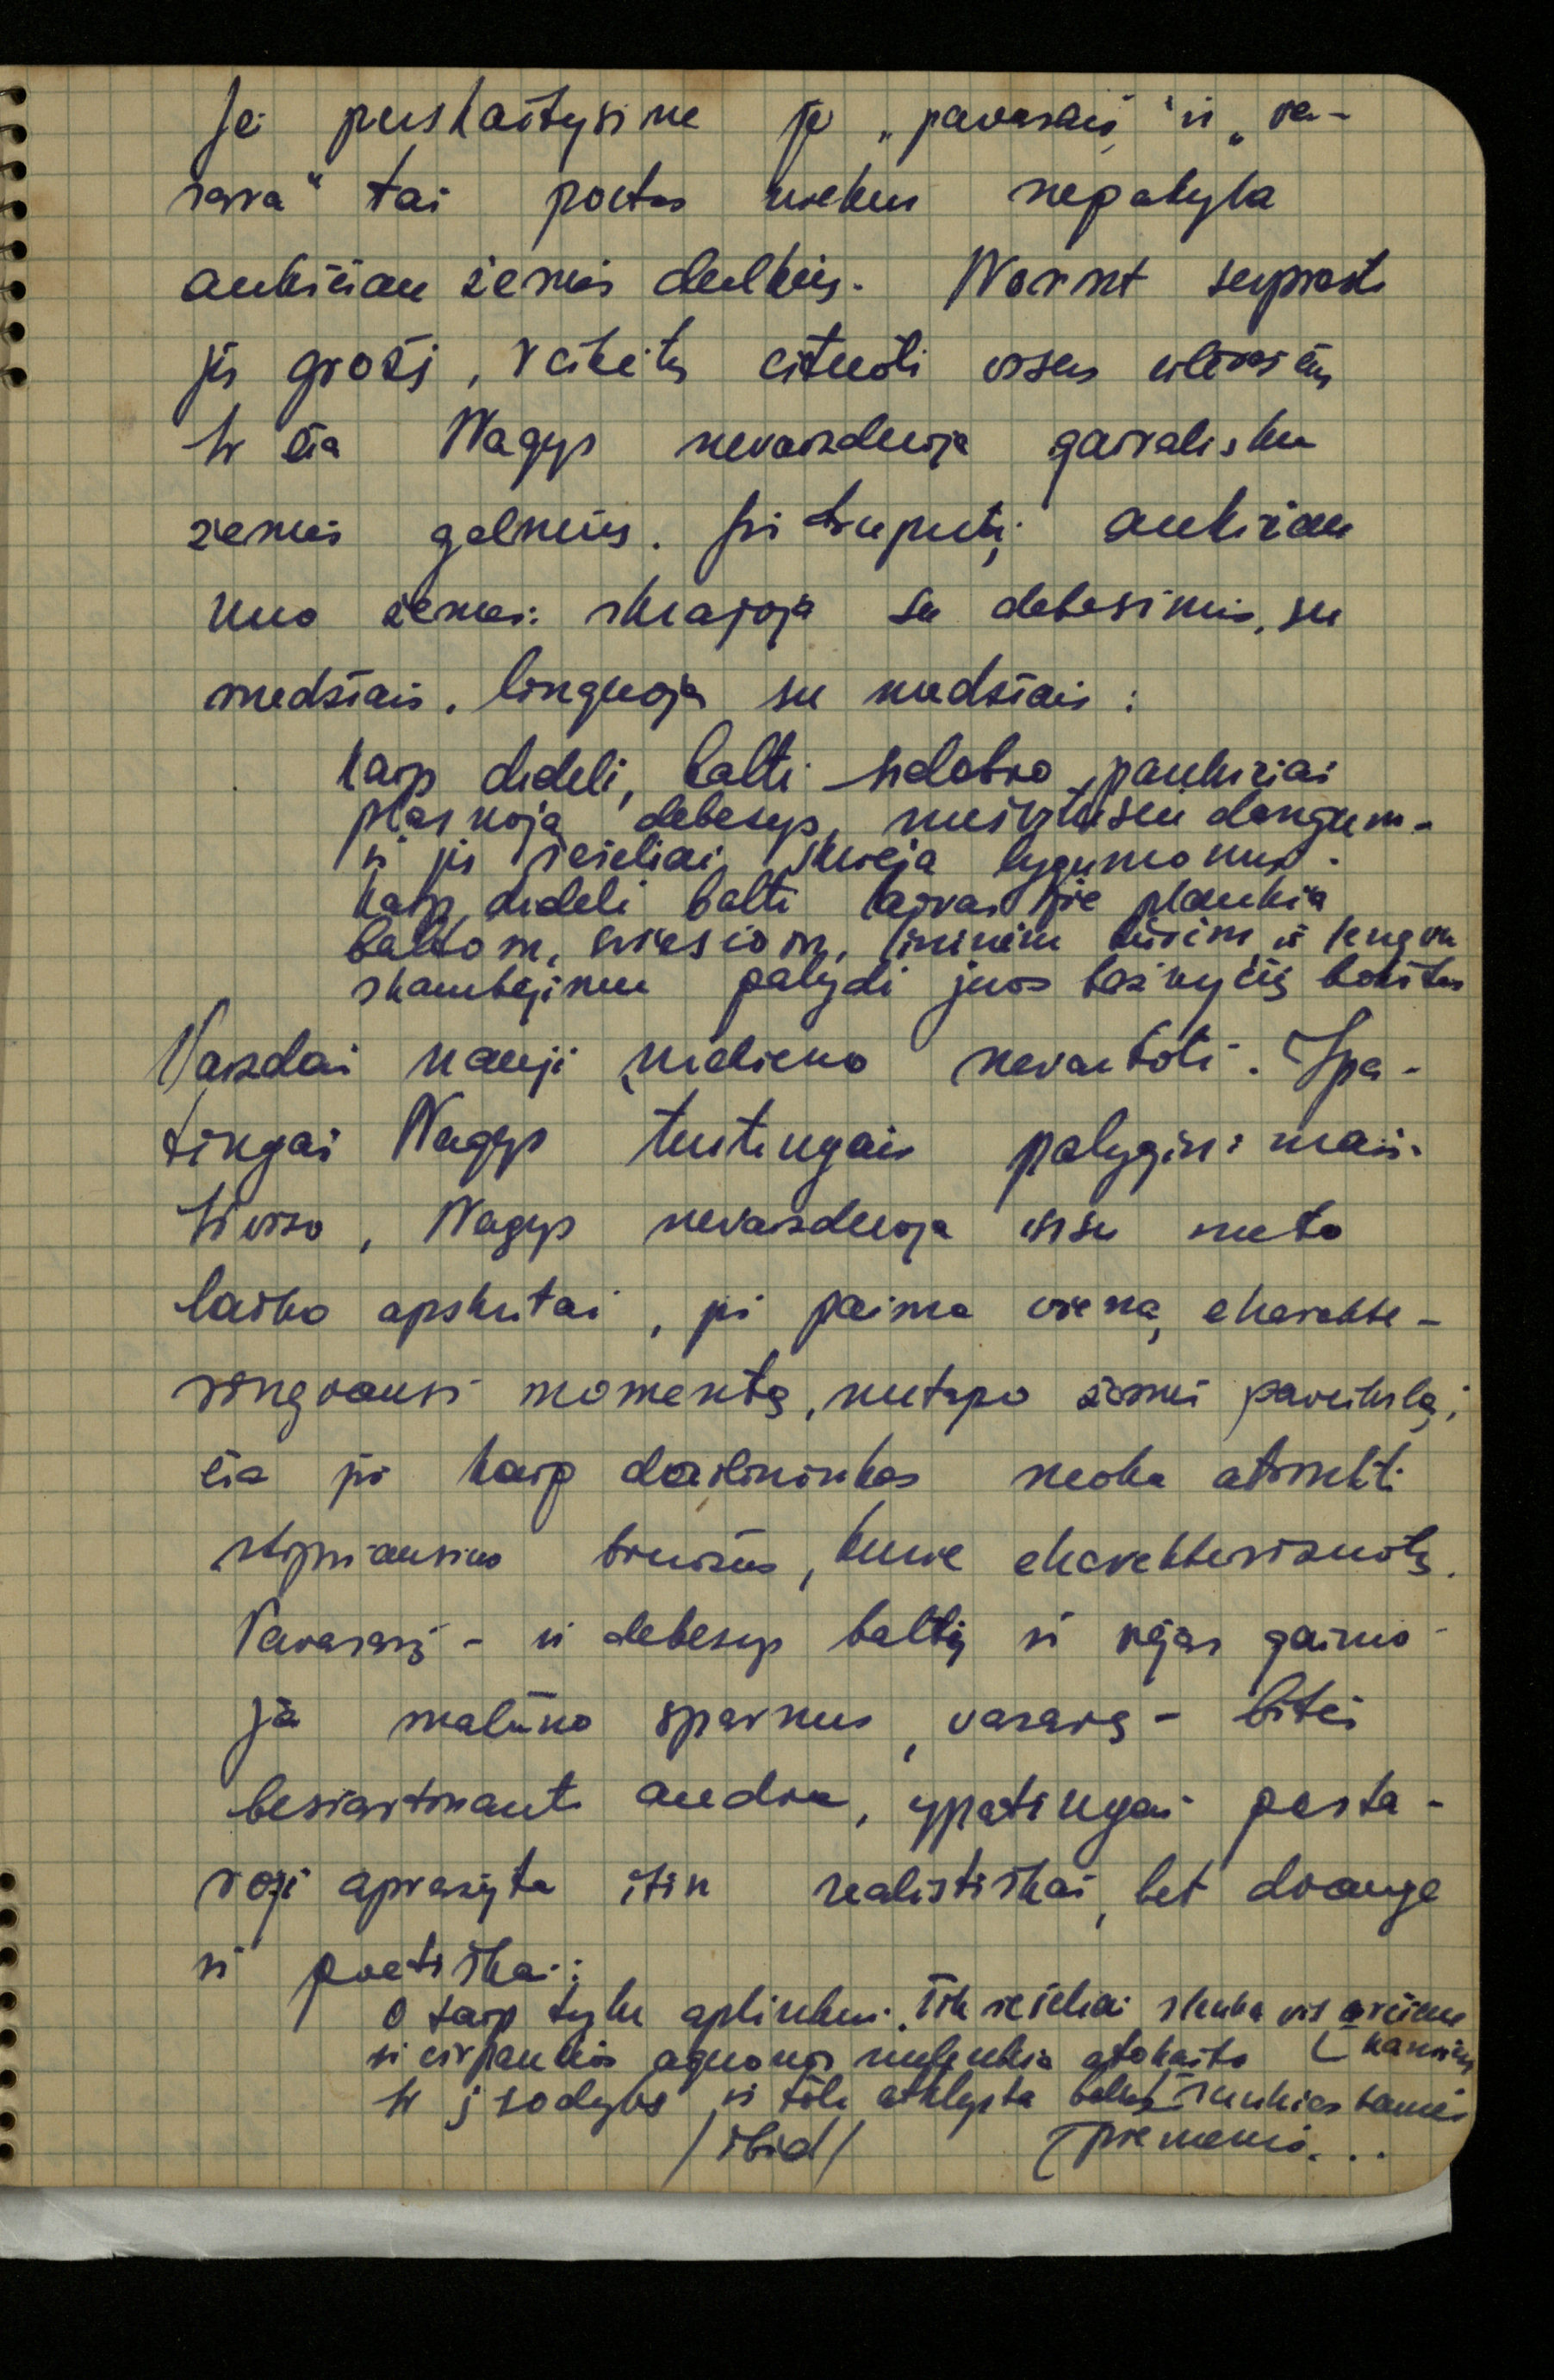 Jei perskaitysime jo „pavasarį“ ir „va-
sara“ tai poetas niekur nepakyla
aukščiau žemės dulkių. Norint suprasti
jų grožį, reikėtų cituoti visus eilėraščius
Ir čia Nagys nevaizduoja gaivališku
žemės gelmių. Jis truputį aukščiau
nuo žemės: skrajoja su debesimis, su
medžiais, linguoja su medžiais:
kaip dideli, balti sidabro paukščiai
plasnoja debesys dangum-
ir jų šešėliai skrieja lygumomis.
kaip dideli balti laivai jie plaukia
baltom, šviesiom, ir lengvu
skambėjimu palydi juos bažnyčių bokštas
Vaizdai nauji, nevartoti. Ypa-
tingai Nagys turtingais palyginimais.
Iš viso, Nagys nevaizduoja visu meto
laiko apskritai, jis paima vieną charakte-
ringiausi momentą, nutapo žemės paveikslą;
čia jis kaip dailininkas moka atrinkti
stipriausius bruožus, kurie charakterizuotų.
Pavasarį - ir debesys baltų ir vėjas gaivo-
ja malūno sparnus, vasarą - bitės
besiartinanti audra, ypatingai pasta-
roji aprašyta itin realistiškai, bet drauge
ir poetiškai:
O taip tylu aplinkui. Tik šešėliai slenka vis arčiau
ir cirpaukės aguonos nulenkia atokaito (kaminų
Ir į sodybas iš tolo atklysta balsas sunkias tamsios
/ibid/ (priemenės...